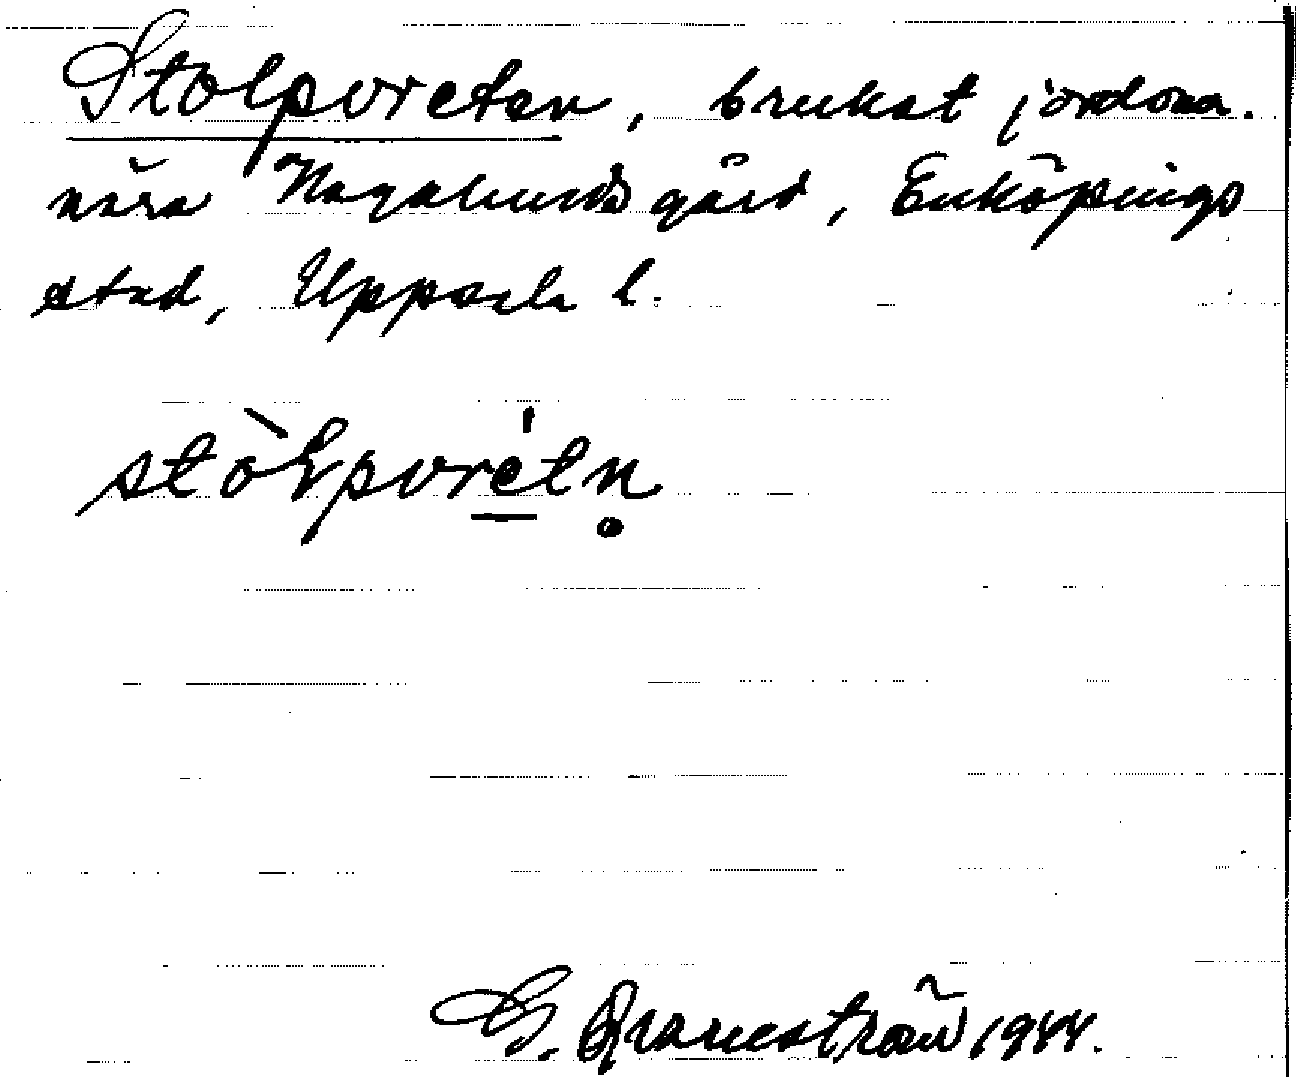 Stolpvreten, brukat jordomr.
nära Hagalunds gård, Enköpings
stad, Uppsala l.
stòlpvrétn̥
G. Franeström 1944.